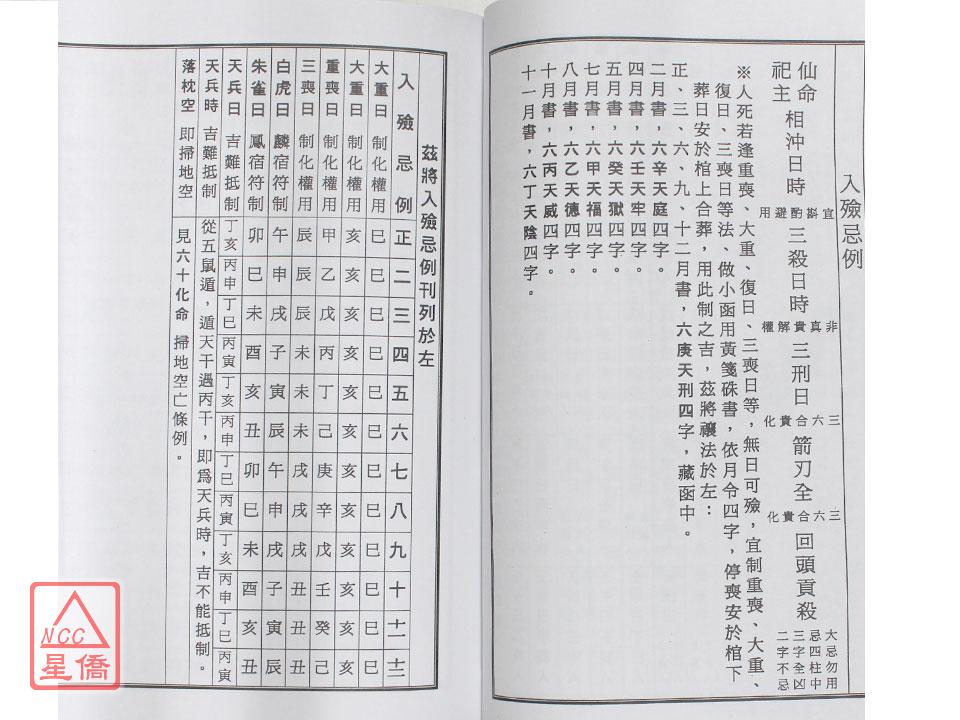 入殮忌例
仙命祀主 相沖日時 宜斟酌避用 三殺日時 非真貴解權 三刑日 三六合貴化 箭刃全 三六合貴化 回頭貢殺 大忌勿用 忌四柱中 三字全凶 二字不忌
※人死若逢重喪、大重、復日、三喪日等，無日可殮，宜制重喪、大重、
復日、三喪日等法、做小函用黃箋硃書，依月令四字，停喪安於棺下
葬日安於棺上合葬，用此制之吉，茲將禳法於左：
正、三、六、九、十二月書，六庚天刑四字，藏函中。
二月書，六辛天庭四字。
四月書，六壬天牢四字。
五月書，六癸天獄四字。
七月書，六甲天福四字。
八月書，六乙天德四字。
十月書，六丙天威四字。
十一月書，六丁天陰四字。
茲將入殮忌例刊列於左
入殮忌例 正 二 三 四 五 六 七 八 九 十 十一 十二
大重日 制化權用 巳 巳 巳 巳 巳 巳 巳 巳 巳 巳 巳 巳
大重日 制化權用 亥 亥 亥 亥 亥 亥 亥 亥 亥 亥 亥 亥
重喪日 制化權用 甲 乙 戊 丙 丁 己 庚 辛 戊 壬 癸 己
三喪日 制化權用 辰 辰 辰 未 未 未 戌 戌 戌 丑 丑 丑
白虎日 麟宿符制 午 申 戌 子 寅 辰 午 申 戌 子 寅 辰
朱雀日 鳳宿符制 卯 巳 未 酉 亥 丑 卯 巳 未 酉 亥 丑
天兵日 吉難抵制 丁亥 丙申 丁巳 丙寅 丁亥 丙申 丁巳 丙寅 丁亥 丙申 丁巳 丙寅
天兵時 吉難抵制 從五鼠遁，遁天干遇丙干，即為天兵時，吉不能抵制。
落枕空 即掃地空 見六十化命 掃地空亡條例。
NCC
星僑